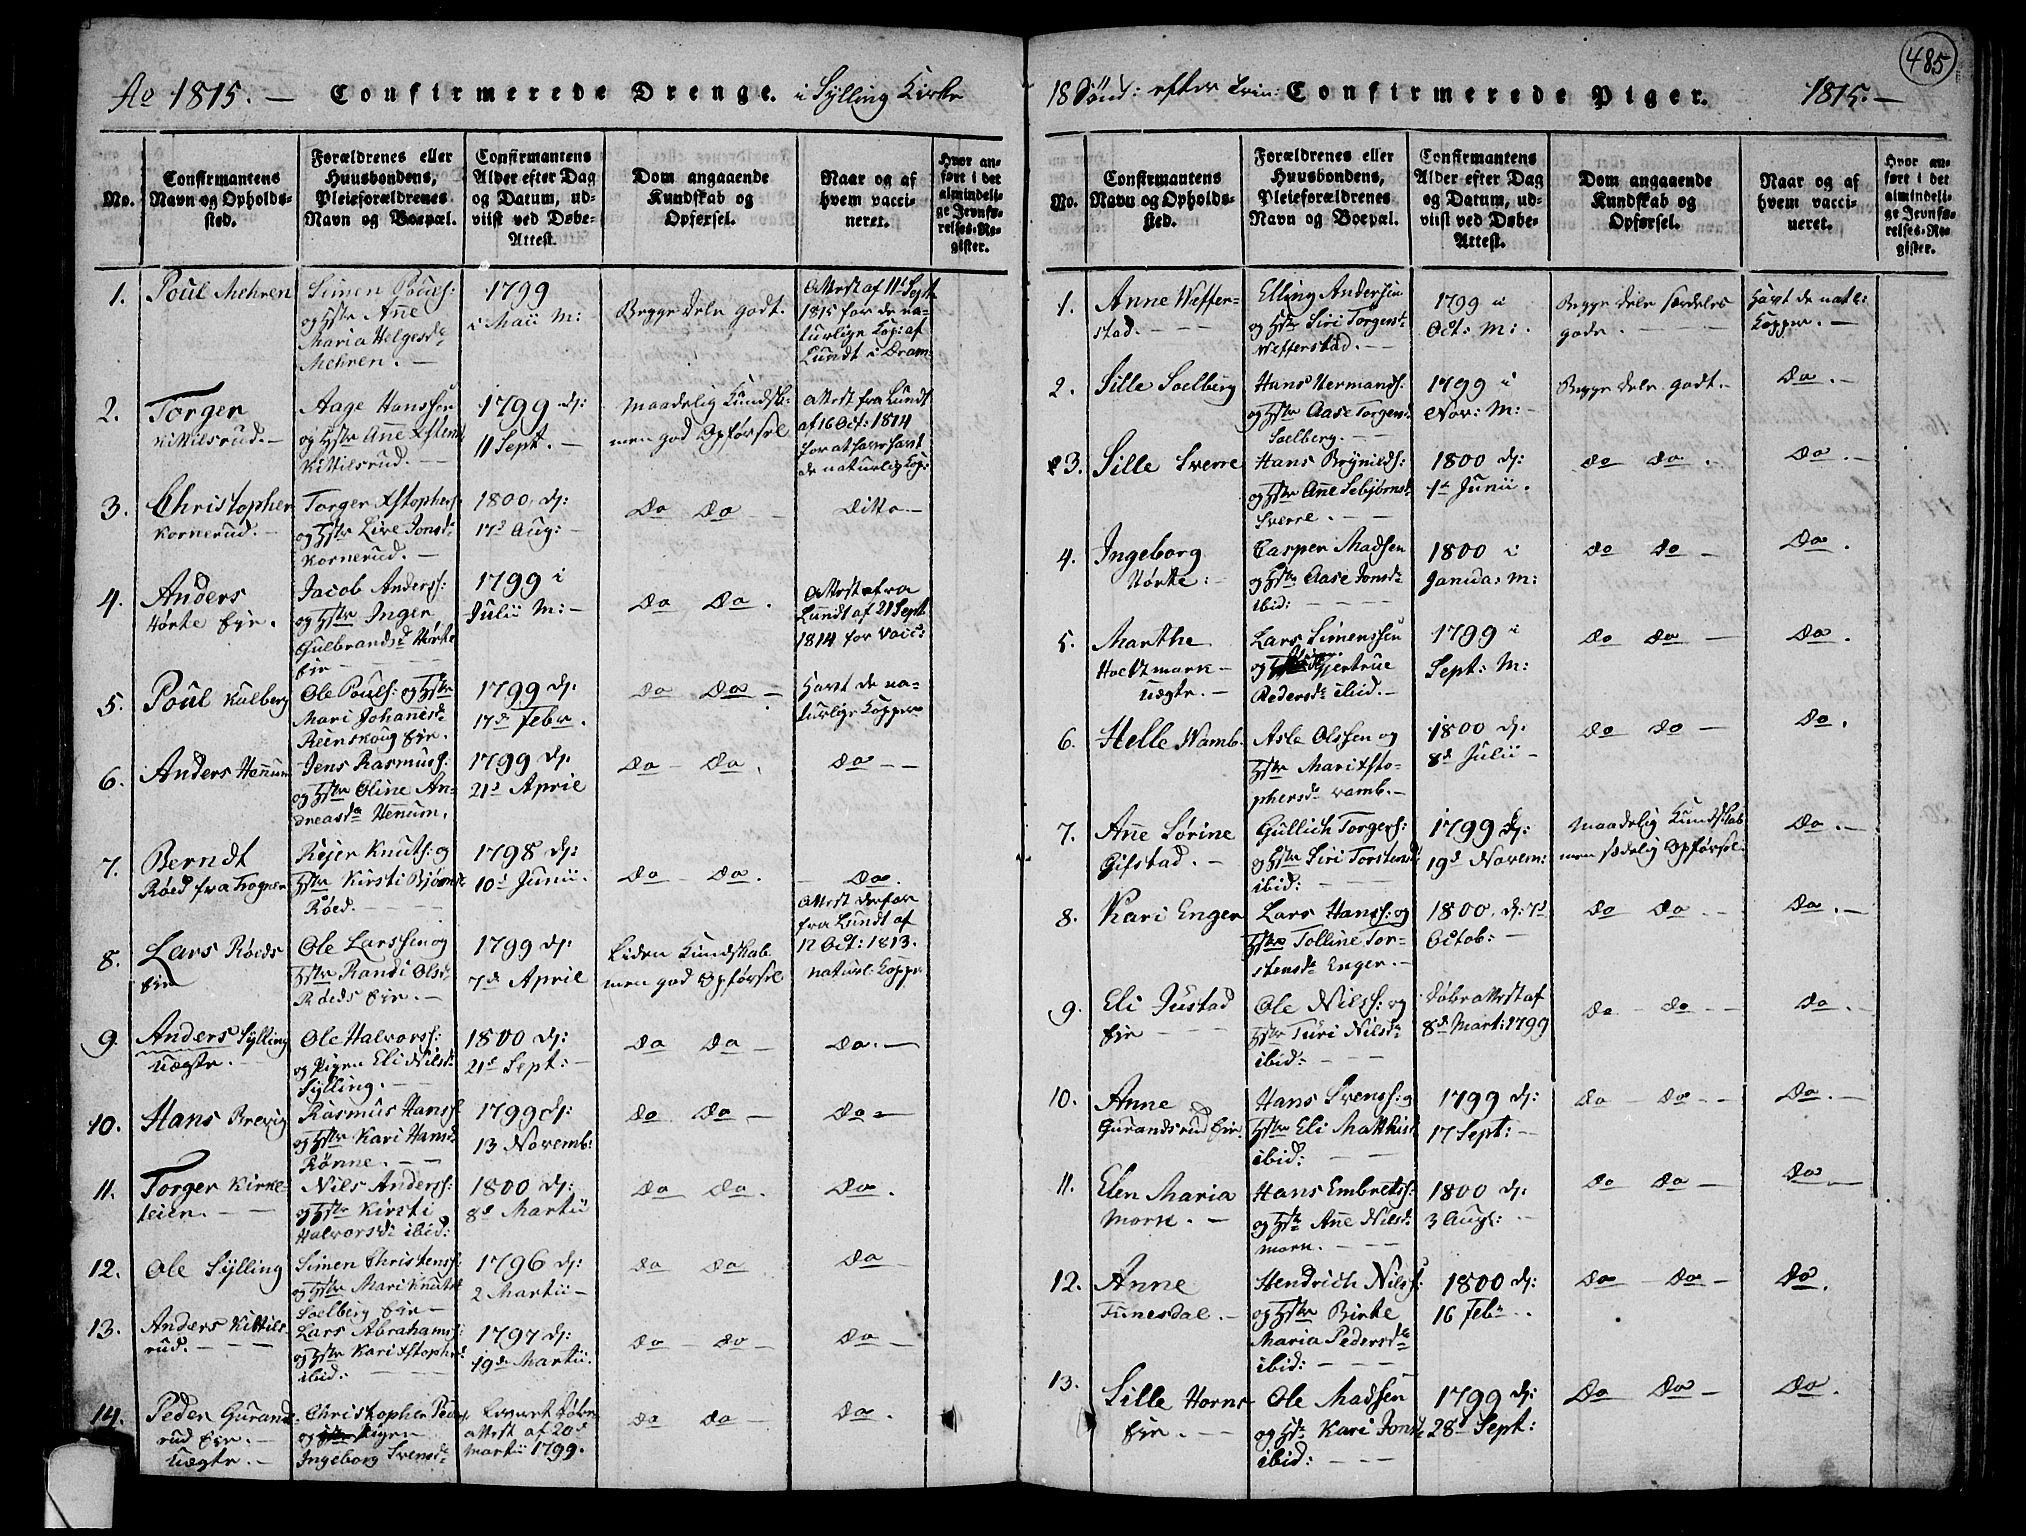 485
Ao 1815. — Confirmerede Drenge. i Sylling Kirke
No.
Confirmantens Navn og Opholdssted.
Forældrenes eller Huusbondens, Pleieforældrenes Navn og Boepæl.
Confirmantens Alder efter Dag og Datum, udviist ved Døbe-Attest.
Dom angaaende Kundskab og Opførsel.
Naar og af hvem vaccineret.
Hvor anført i det almindelige Jevnførelses-Register.
1.
Poul Mehren
Simen Pouls:
og Hstr Añe
Maria Helgesd:
Mehren. —
1799
i Maii M: —
Begge Dele godt.
Attest af 11t Sept
1815 for de na-
turlige Kop: af
Lundt i Dram:
2.
Torger
Kittilsrud. —
Aage Hanssen
og Hstr Añe
Kittilsrud. —
1799 d:
11 Sept. —
Maadelig Kundsk:
men god Opførsel
Attest fra Lundt
af 16 Oct: 1814
for at have havt
de naturlig Kop:
3.
Christopher
Kornerud. —
Torger Xstophers:
og Hstr Live Jonsd:
Kornerud. —
1800. d:
17d Aug: —
Do Do —
Ditto —
4.
Anders
Hørte Eie.
Jacob Anderss:
og Hstr Inger
Gulbrandsd Hørte
Eie —
1799 i
Julii M: —
Do Do.
Attest fra
Lundt af 21 Sept
1814 for Vacc:
5.
Poul Kulberg
Ole Pouls: og Hstr
Mari Johañisd:
Reenskoug Eie.
1799 d:
17de Febr.
Do Do —
Havt de na-
turlige Kopper
6.
Anders Heñum
Jens Rasmus:
og Hstr Oline An-
dreasda Heñum.
1799 d:
21d April
Do — Do.
Do — —
7.
Berndt
Røed fra Trogner
Rejer Knuts: og
Hstr Kirsti Bjørnsd
Røed. —
1798 d:
10d Junii. —
Do — Do.
Do.
8.
Lars Røeds
Eie
Ole Larssen og
Hstr Randi Olsd:
Røeds Eie. —
1799 d:
7de April
Liden Kundskab
men god Opførsel
Attest derfor
fra Lundt af
12 Oct: 1813.
naturl: Kopper
9.
Anders Sylling
Uægte. —
Ole Halvorss:
og Pigen Eli Nilsd:
Sylling. —
1800 d:
21d Sept: —
Do Do —
Do. —
10.
Hans Brevig
Rasmus Hanss:
og Hstr Kari Hansd:
Rønne. —
1799 d:
13 Novemb:
Do Do —
Do —
11.
Torger Kirke-
teien. —
Nils Anderss:
og Hstr Kirsti
Halvorsd: ibid:
1800 d:
8d Martii
Do Do.
Do.
12.
Ole Sylling
Simen Christenss:
og Hstr Mari Knutsd
Soelberg Eie —
1796 d:
2 Martii —
Do Do
Do
13.
Anders Kittils-
rud. —
Lars Abrahams:
og Hstr Kari Xstophd:
ibid: —
1797 d:
19de Martii.
Do — Do —
Do —
14.
Peder Gurands-
rud Eie. —
Uægte. —
Christopher Peders:
og Pigen
Ingeborg Svensd:
Døbe
attest af 20d
Martii 1799.
Do Do —
Do.
18 Sönd: efter Trin: Confirmerede Piger. 1815. —
No.
Confirmantens Navn og Opholdssted.
Forældrenes eller Huusbondens, Pleieforældrenes Navn og Boepæl.
Confirmantens Alder efter Dag og Datum, udviist ved Døbe-Attest.
Dom angaaende Kundskab og Opførsel.
Naar og af hvem vaccineret.
Hvor anført i det almindelige Jevnførelses-Register.
1.
Anne Weffer-
stad. —
Elling Andersen
og Hstr Siri Torgersd:
Wefferstad. —
1799 i
Oct: M: .
Begge Dele særdeles
gode. —
Havt de natl:
Kopper. —
2.
Sille Soelberg
Hans Hermands:
og Hstr Aase Torgersd
Soelberg. —
1799 i
Nov: M: —
Begge Dele godt. —
Do. —
3.
Sille Sverre
Hans Brynilds:
og Hstr Añe Sebjørnsd:
Sverre. —
1800 d:
1t Junii.
Do Do —
Do. —
4.
Ingeborg
Hørte: —
Casper Madsen
og Hstr Aase Jonsd:
ibid: —
1800 i
Janua: M:
Do Do —
Do.
5.
Marthe
Hoeltmark —
Uægte. —
Lars Simenssen
og Gjertrue
Pedersd: ibid. —
1799 i
Sept: M:
Do Do —
Do.
6.
Helle Wamb.
Asle Olssen og
Hstr Mari Xsto-
phersda Wamb. —
1800 d:
8d Julii —
Do Do —
Do.
7.
Añe Sørine
Gifstad. —
Gullich Torgers:
og Hstr Siri Torstensd
ibid: —
1799 d:
19d Novem:
Maadelig Kundskab
men sædelig Opførsel.
Do. —
8.
Kari Enger
Lars Hanss: og
Hstre Tolline Tor-
stensda Enger. —
1800. d: 7d
Octob: —
Do Do. —
Do. —
9.
Eli Justad
Eie —
Ole Nilss: og
Hstr Turi Nilsd:
ibid: —
Døbeattest af
8de Mart: 1799
Do — Do —
Do —
10.
Anne
Gurandsrud Eie:
Hans Svenss: og
Hstr Eli Matthisd
ibid: —
1799 d:
17 Sept: —
Do — Do. —
Do. —
11.
Elen Maria
Mork. —
Hans Embretss:
og Hstr Añe Nilsd:
Mork. —
1800 d:
3 Aug: —
Do Do —
Do —
12.
Anne
Tunesdal. —
Hendrich Nilss:
og Hstr Birte
Maria Pedersda
ibid: —
1800 d:
16 Febr.
Do — Do —
Do.
13.
Sille Horns-
Eie. —
Ole Madsen
og Hst: Kari Jonsd:
ibid: —
1799 d:
28d Sept:
Do Do —
Do.